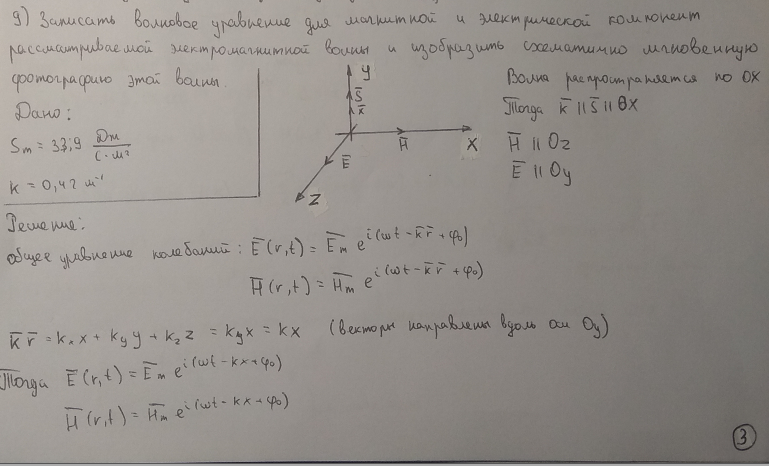 9) Записать волновое уравнение для магнитной и электрической компонент
рассматриваемой электромагнитной волны и изобразить схематично мгновенную
фотографию этой волны.
Дано:
Sm = 33,9 Дж/(с·м²)
k = 0,42 м⁻¹
y
S̄
k̄
H̄
X
Ē
Z
Волна распространяется по OX
Тогда k̄ || S̄ || OX
H̄ || Oz
Ē || Oy
Решение:
общее уравнение колебаний: Ē(r,t) = Ēm e^i(ωt - k̄r̄ + φ₀)
H̄(r,t) = H̄m e^i(ωt - k̄r̄ + φ₀)
k̄r̄ = kₓx + kyy + kzz = kyx = kx (векторы направлены вдоль оси Oy)
Тогда Ē(r,t) = Ēm e^i(ωt - kx + φ₀)
H̄(r,t) = H̄m e^i(ωt - kx + φ₀)
3